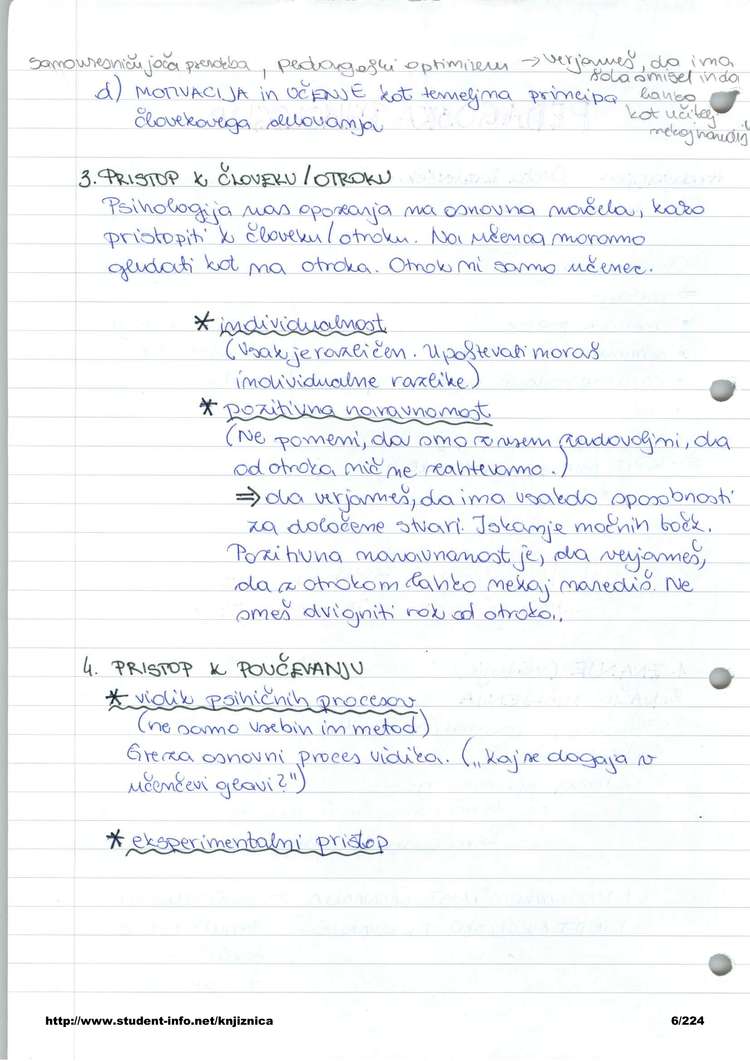 samouresničujoča prerokba, pedagoški optimizem → verjameš, da ima
šola smisel in da
lahko
kot učitelj
nekaj narediš
d) MOTIVACIJA in UČENJE kot temeljna principa
človekovega delovanja
3. PRISTOP K ČLOVEKU/OTROKU
Psihologija nas opozarja na osnovna načela, kako
pristopiti k človeku/otroku. Na učenca moramo
gledati kot na otroka. Otrok ni samo učenec.
* individualnost
(Vsak je različen. Upoštevati moraš
individualne razlike)
* pozitivna naravnanost
(Ne pomeni, da smo z vsem zadovoljni, da
od otroka nič ne zahtevamo.)
⇒ da verjameš, da ima vsakdo sposobnosti
za določene stvari. Iskanje močnih točk.
Pozitivna naravnanost je, da verjameš,
da z otrokom lahko nekaj narediš. Ne
smeš dvigniti rok od otroka.
4. PRISTOP K POUČEVANJU
* vidik psihičnih procesov
(ne samo vsebin in metod)
Gre za osnovni proces vidika. („kaj se dogaja v
učenčevi glavi?")
* eksperimentalni pristop
http://www.student-info.net/knjiznica
6/224